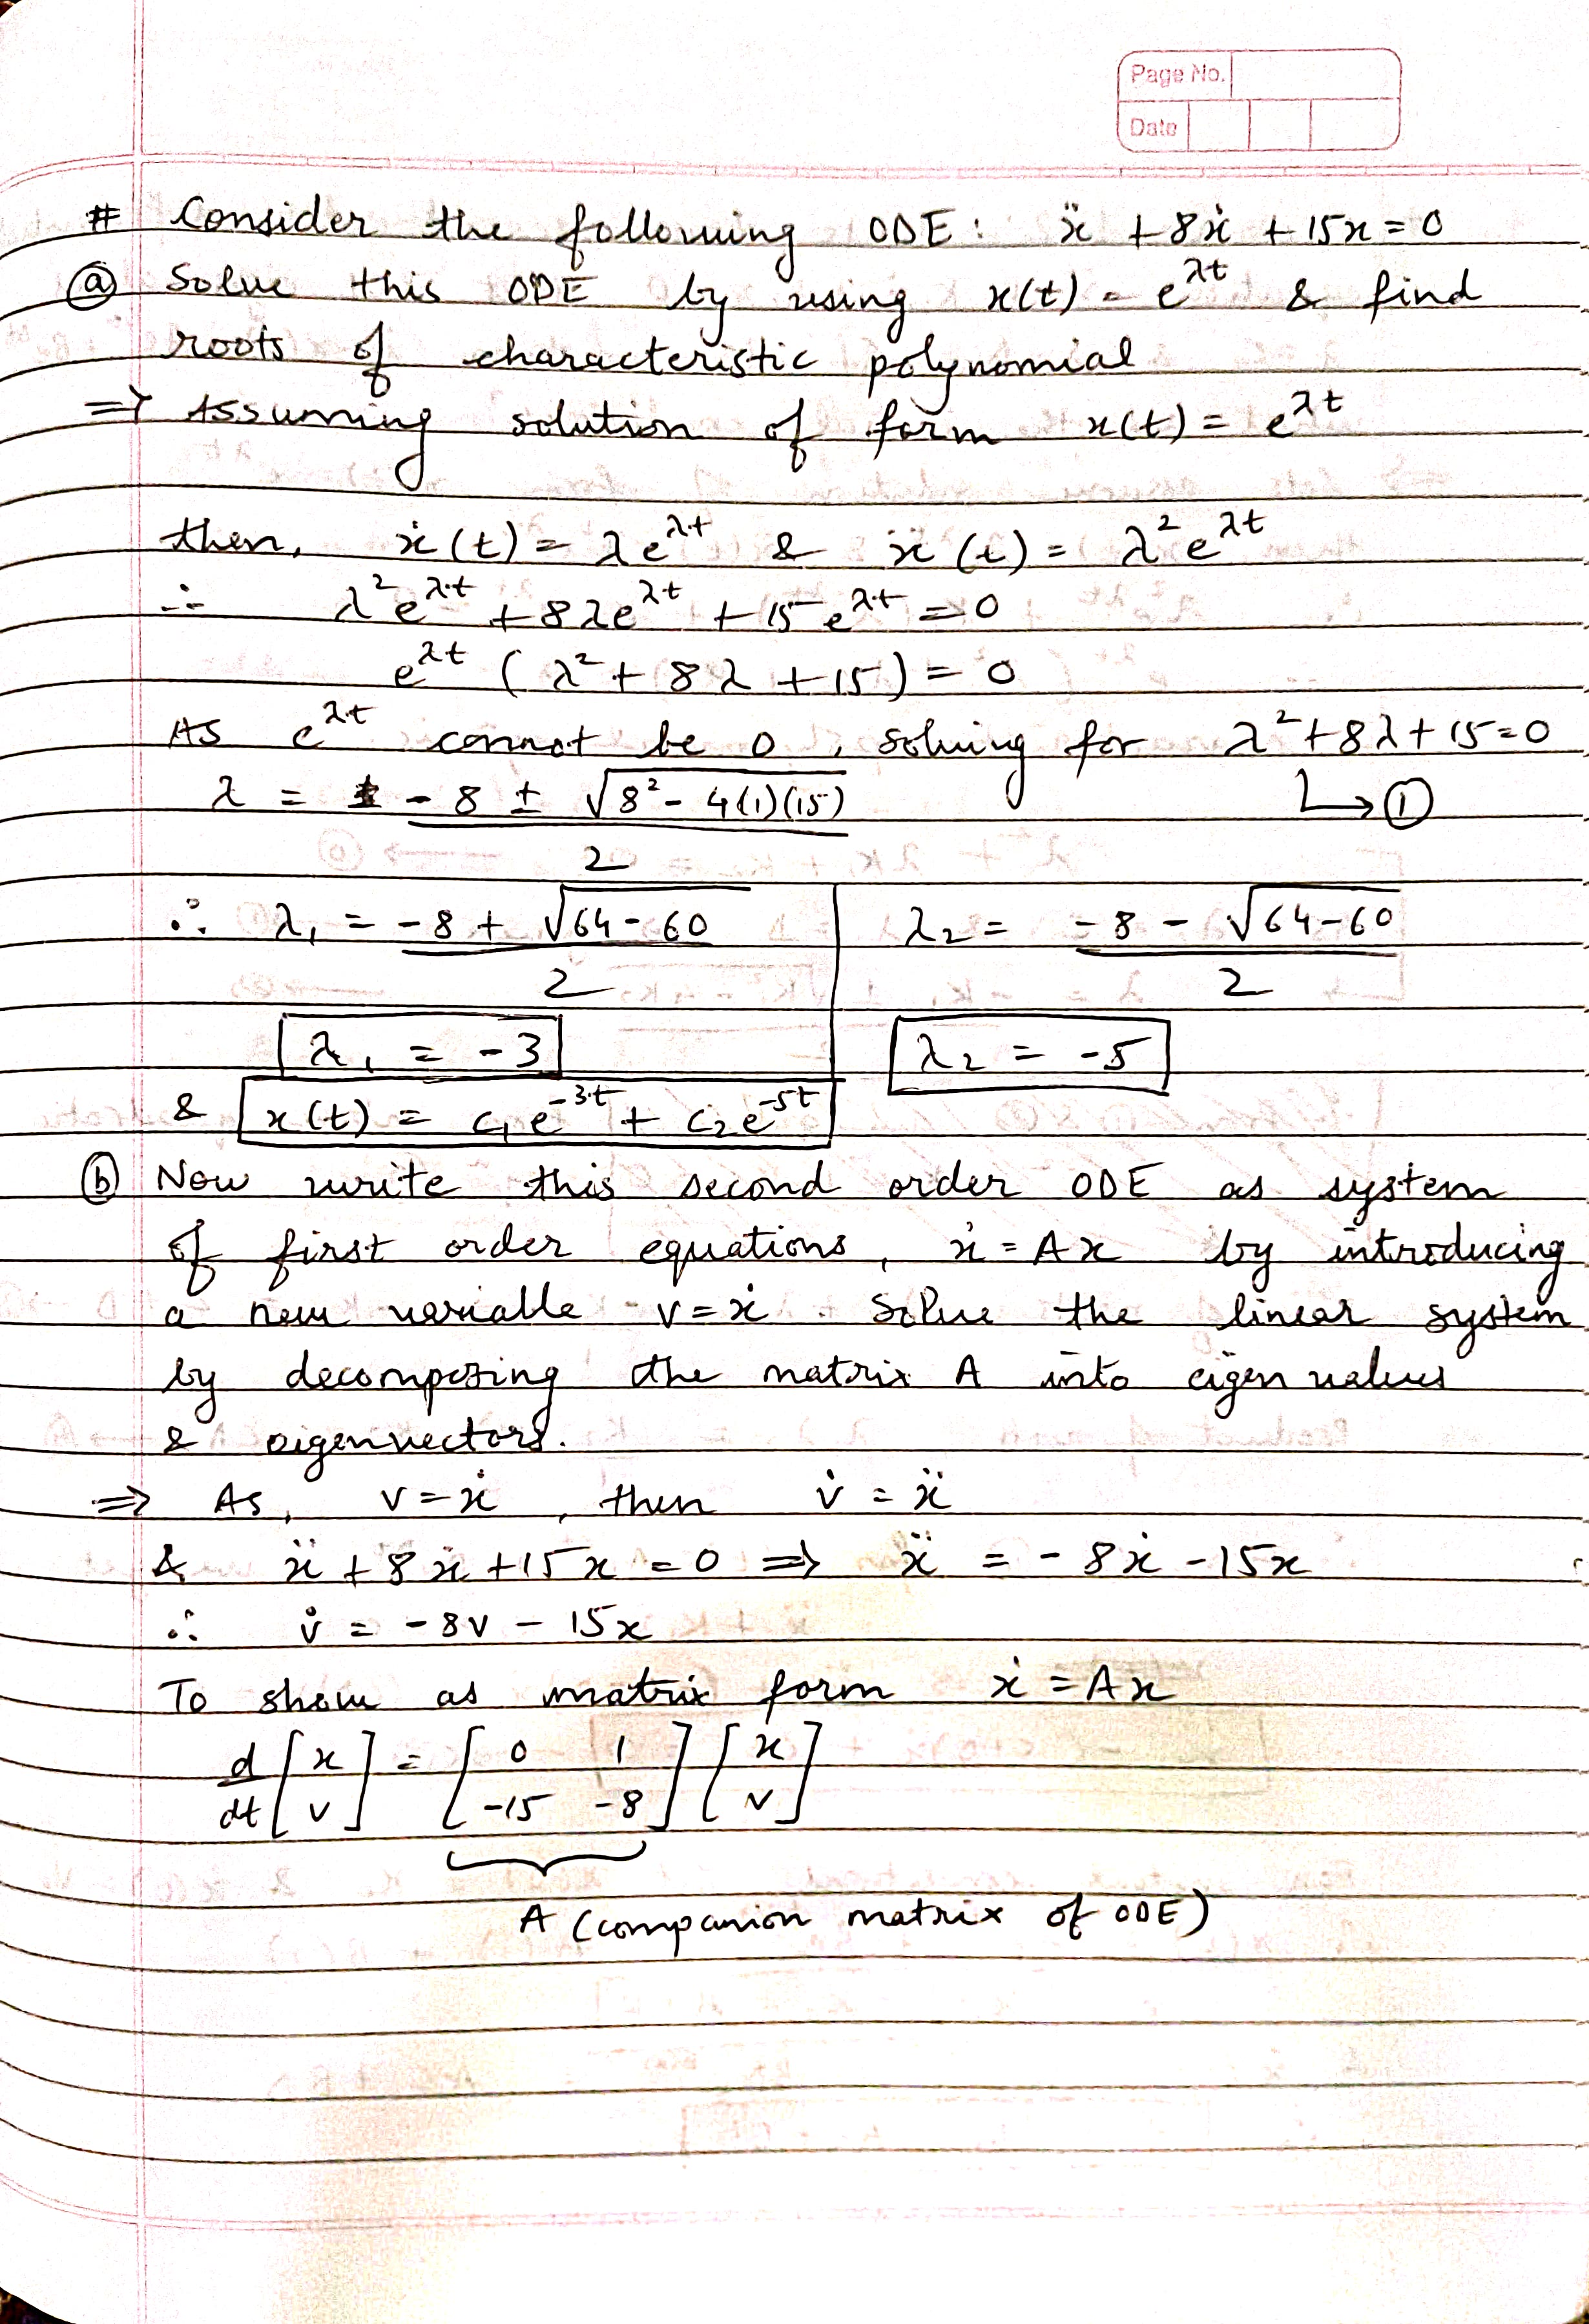 Page No.
Date
# Consider the following ODE : ẍ + 8ẋ + 15x = 0
ⓐ Solve this ODE by using x(t) = e^λt & find
roots of characteristic polynomial
⇒ Assuming solution of form x(t) = e^λt
then, ẋ(t) = λe^λt & ẍ(t) = λ²e^λt
∴ λ²e^λt + 8λe^λt + 15e^λt = 0
e^λt (λ² + 8λ + 15) = 0
As e^λt cannot be 0, solving for λ² + 8λ + 15 = 0
λ = -8 ± √(8² - 4(1)(15)) / 2 ↳ ①
∴ λ₁ = -8 + √(64-60) / 2 | λ₂ = -8 - √(64-60) / 2
λ₁ = -3 λ₂ = -5
& x(t) = c₁e^-3t + c₂e^-5t
ⓑ Now write this second order ODE as system
of first order equations, ẋ = Ax by introducing
a new variable v = ẋ . Solve the linear system
by decomposing the matrix A into eigen values
& eigenvectors.
⇒ As, v = ẋ , then v̇ = ẍ
& ẍ + 8ẋ + 15x = 0 ⇒ ẍ = -8ẋ - 15x
∴ v̇ = -8v - 15x
To show as matrix form ẋ = Ax
d/dt [x v] = [0 1 -15 -8] [x v]
A (companion matrix of ODE)